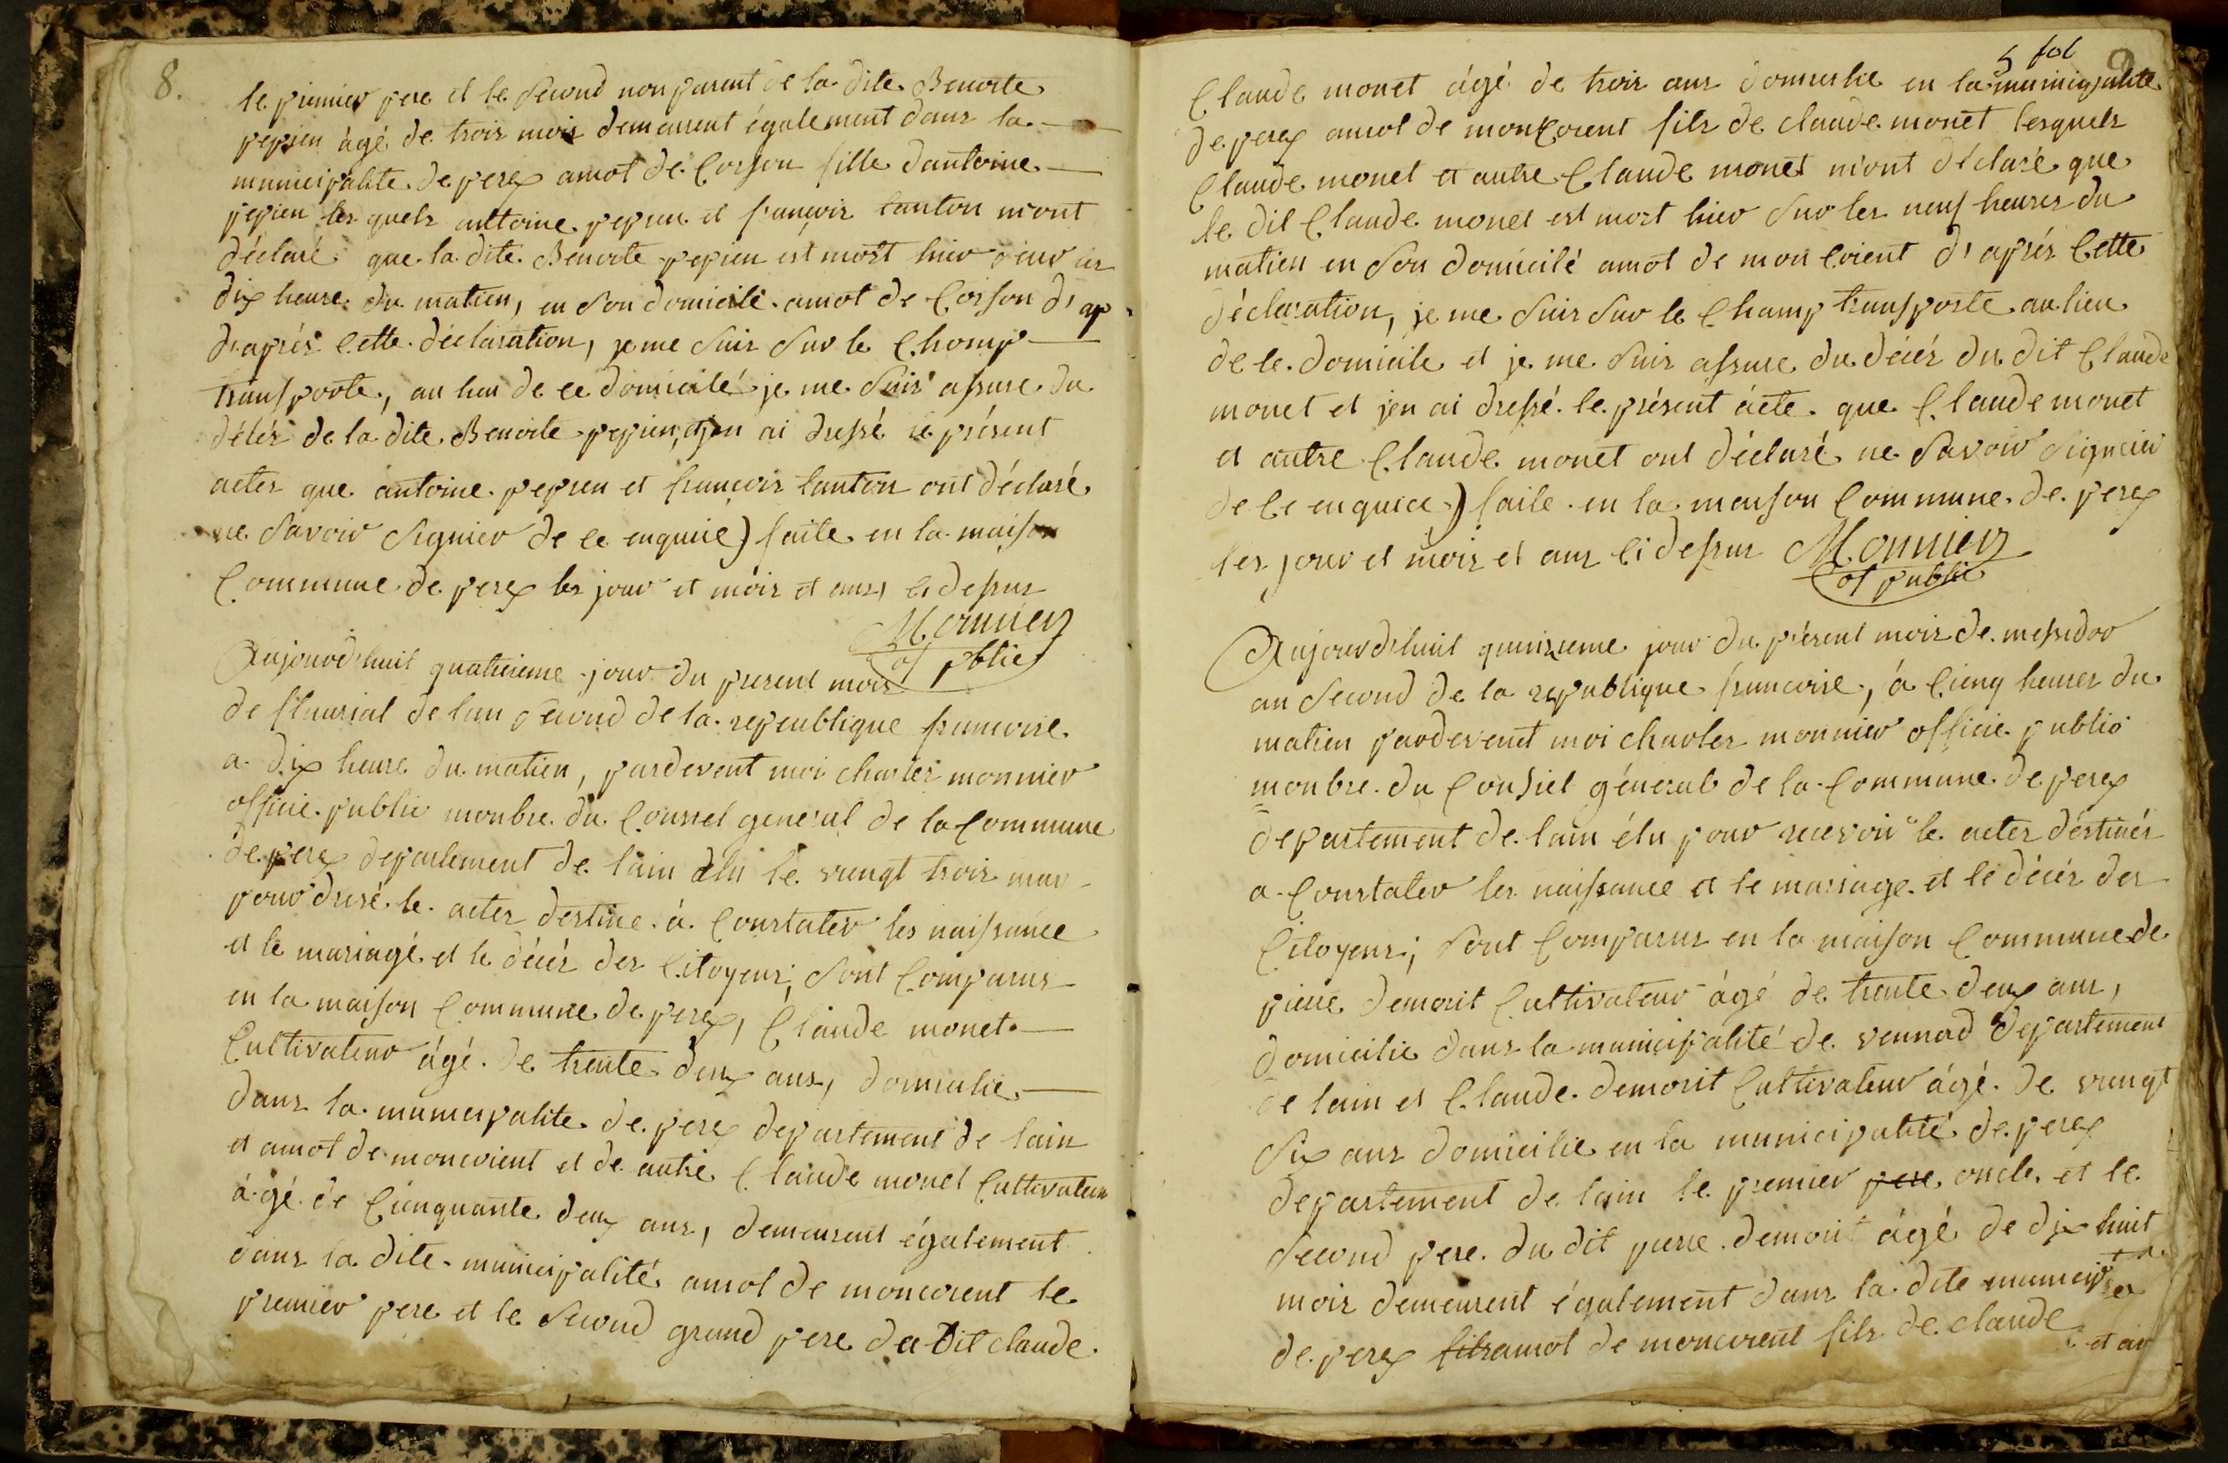 8.
le premier pere et le second non parent de la dite Benoite
pepien âgé de trois mois demeurent également dans la
municipalite de perex amot de Corson fille dantoine
pepien les quels antoine pepien et françois Canton mont
déclaré que la dite Benoite pepien est mort hier
dix heure du matien, en son domicile amot de Corson d'ap
d'après cette déclaration, je me suis sur le Chomp
transporte, au lieu de ce domicilé je me suis assure du
décés de la dite Benoite pepien, et jen ai dressé le présent
actes que antoine pepien et françois Canton ont déclaré
ne savoir signier de ce enquicé) faite en la maison
Commune de perex les jour et mois et ans, ci dessus
Monnier
of pblic
Aujourd'huit quatrieme jour du present mois
de flaurial de lan second de la repeublique francoise
a dix heure du matien, pardevent moi charles monnier
officie public monbre du Counsel general de la Commune
de perex departement de lain élu le vengt trois mar
pour dresé le actes destine à Constater les naissance
et le mariagé et le décés des Citoyens; sont Comparus
en la maison Commune de perex, Claude monet
Cultivateur âgé de trente deux ans, domicilie
dans la municipalite de perex departement de lain
et amot de moncorient et de autre Claude monet Cultivateur
âgé de Cienquante deux ans, demeurent également
dans la dite municipalité amot de moncorient le
premier pere et le second grand pere du dit claude
5 fol
9
Claude monet âgé de trois ans domicilie en la municipalite
de perex amot de moncorient fils de claude monet lesquels
Claude monet et autre Claude monet m'ont déclaré que
le dit Claude monet est mort hier sur les neuf heures du
matien en son domicilé amot de mon Corient d'après Cette
déclaration, je me suis sur le Champ transporte au lieu
de ce domicile et je me suis assure du décés du dit Claude
monet et jen ai dressé le présent acte que Claude monet
et autre Claude monet ont déclaré ne savoir signier
de ce enquicé) faite en la maison Commune de perex
les jour et mois et ans ci dessus Monnier
of public
Aujourd'huit quinzieme jour du présent mois de messidor
an second de la republique francoise, à Cienq heures du
matien pardevent moi charles monnier officie public
monbre du Consiel géneral de la Commune de perex
departement de lain élu pour recevoir le actes déstinés
a Constater les naissance et le mariage et le décés des
Citoyens; sont Comparus en la maison Commune de
pierre demorit Cultivateur âgé de trente deux ans,
domicilie dans la municipalité de vennad departement
de lain et Claude demorit Cultivateur âgé de vengt
six ans domicilie en la municipalité de perex
departement de lain le premier pere oncle et le
second pere du dit pierre demorit âgé de dix huit
mois demeurent également dans la dite municip
de perex fils amot de moncorient fils de claude